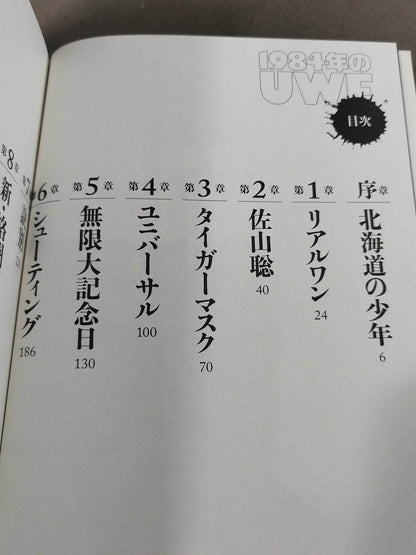 1984年の
UWF
目次
序章 北海道の少年 6
第1章 リアルワン 24
第2章 佐山聡 40
第3章 タイガーマスク 70
第4章 ユニバーサル 100
第5章 無限大記念日 130
第6章 シューティング 186
第8章